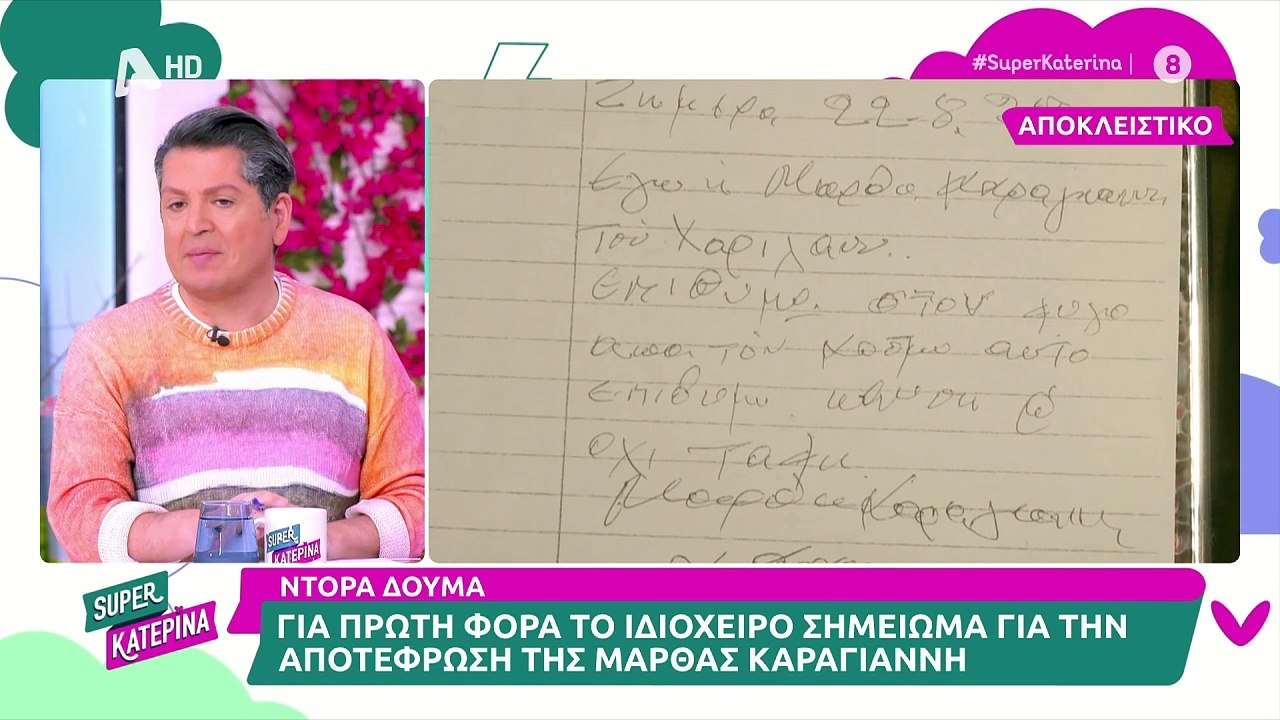 A HD
#SuperKaterina | 8
ΑΠΟΚΛΕΙΣΤΙΚΟ
Σημερα 22-8.
Εγω η Μαρθα Καραγιαννη
του Χαριλαου..
Επιθυμω οταν φυγω
απο τον κοσμο αυτο
επιθυμω καυση
οχι ταφη
Μαρθα Καραγιαννη
SUPER
ΚΑΤΕΡΙΝΑ
SUPER
ΚΑΤΕΡΙΝΑ
ΝΤΟΡΑ ΔΟΥΜΑ
ΓΙΑ ΠΡΩΤΗ ΦΟΡΑ ΤΟ ΙΔΙΟΧΕΙΡΟ ΣΗΜΕΙΩΜΑ ΓΙΑ ΤΗΝ
ΑΠΟΤΕΦΡΩΣΗ ΤΗΣ ΜΑΡΘΑΣ ΚΑΡΑΓΙΑΝΝΗ